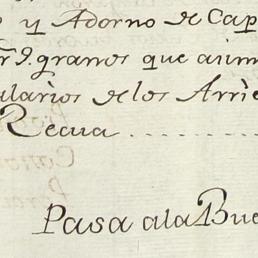 y Adorno de Cap
granos que
de los Arrie
Recua
Pasa ala Bue